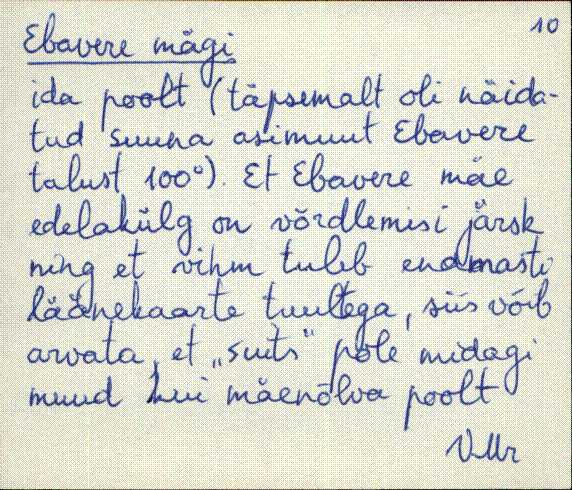 10
Ebavere mägi
ida poolt (täpsemalt oli näida-
tud suuna asimuut Ebavere
talust 100°). Et Ebavere mäe
edelakülg on võrdlemisi järsk
ning et vihm tuleb enamasti
läänekaarte tuultega, siis võib
arvata, et „suits" pole midagi
muud kui mäenõlva poolt
VMr